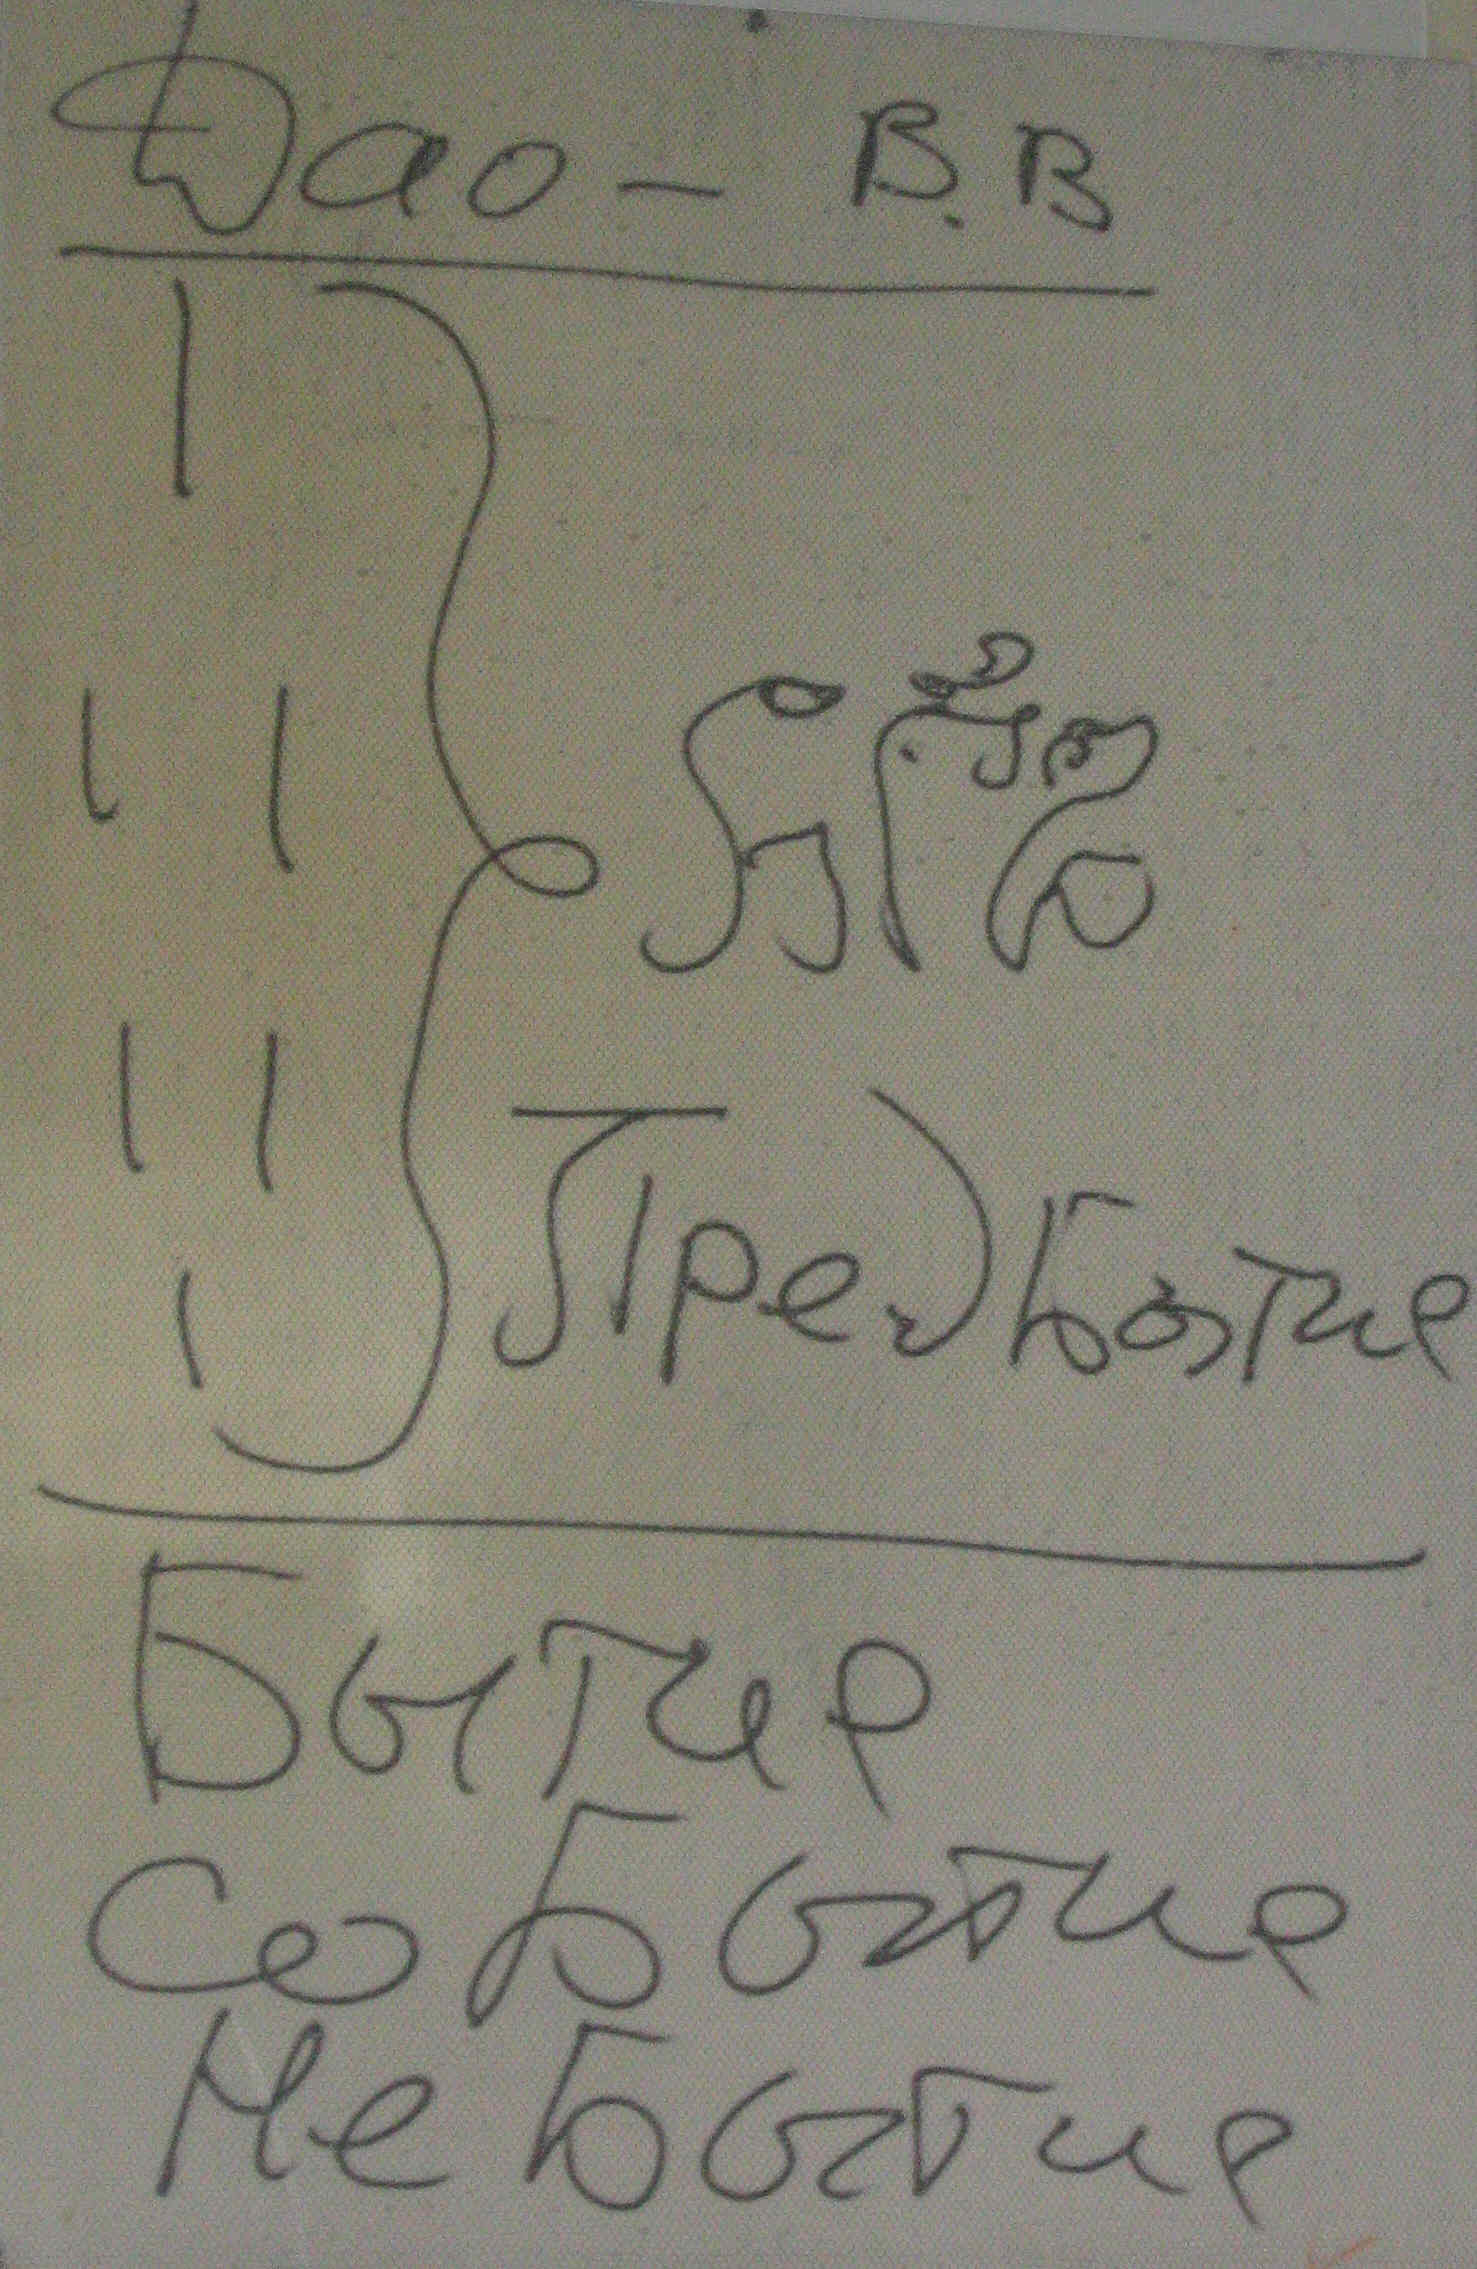 Дао – В.В
Предбытие
Бытие
Событие
Небытие